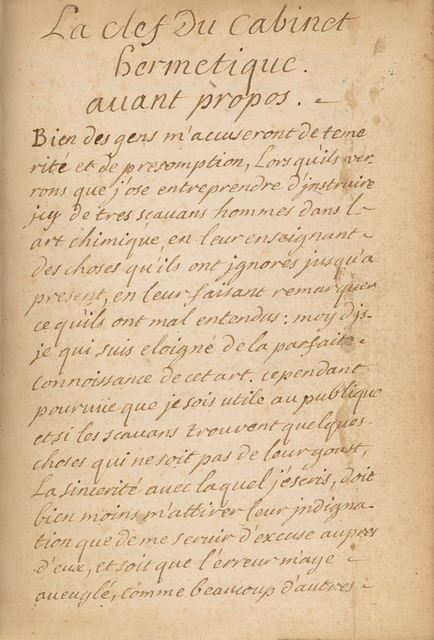 La clef Du Cabinet
hermetique.
avant propos.
Bien des gens m'accuseront de teme
rité et de presomption, Lors qu'ils ver
rons que j'ose entreprendre d'jnstruire
jcy de tres scavans hommes dans l-
art chimique, en leur enseignant -
des choses qu'ils ont jgnorés jusqu'a
present, en leur faisant remarquer
ce qu'ils ont mal entendus: moy dis
je qui suis eloigné de la parfaite -
Connoissance de cet art. cependant
pourvüe que je sois utile au publique
et si les scavans trouvent quelques
choses qui ne soit pas de leur goust,
La sincerité avec laquel j'escris, doit
bien moins m'attirer leur jndigna-
tion que de me servir d'excuse aupres
d'eux, et soit que l'erreur m'aye -
aveuglé, comme beaucoup d'autres -